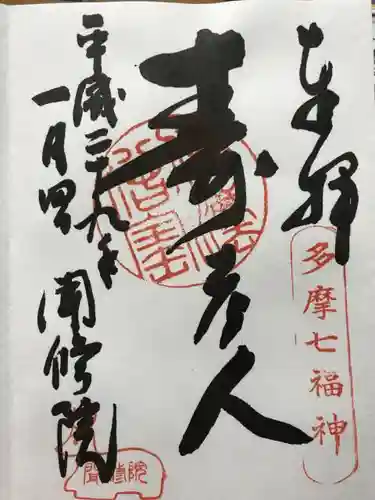 奉拝
多摩七福神
寿老人
平成二十九年
一月四日
聞修院
聞修院